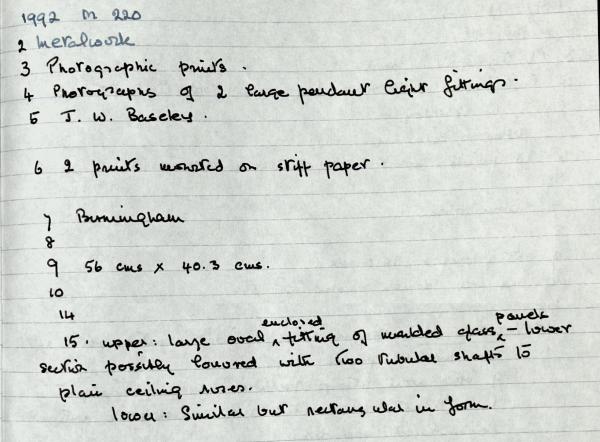 1992 M 220
2 Metalwork
3 Photographic prints.
4 Photographs of 2 large pendant light fittings.
5 J. W. Baseley.
6 2 prints mounted on stiff paper.
7 Birmingham
8
9 56 cms x 40.3 cms.
10
14
15. upper: large oval enclosed fitting of moulded glass panels - lower
section possibly louvred with two tubular shafts to
plain ceiling roses.
lower: Similar but rectangular in form.